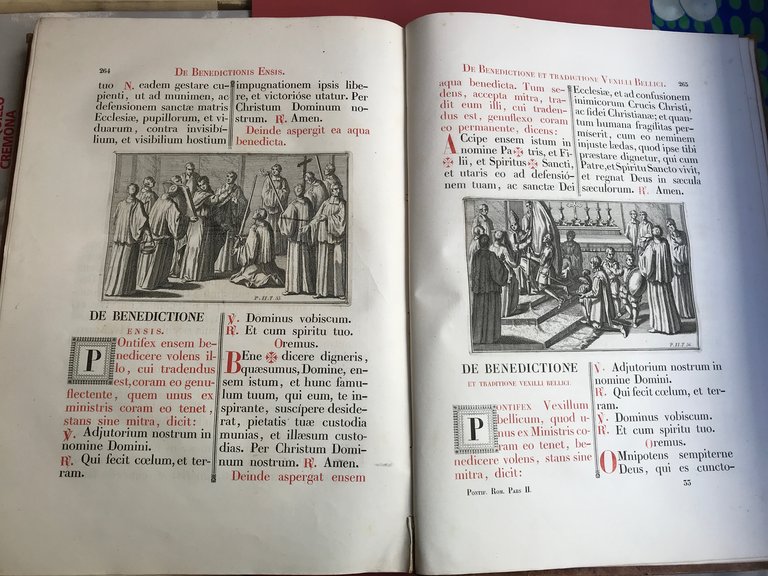 CREMONA
264
De Benedictionis Ensis.
tuo N. eadem gestare cu-
pienti, ut ad munimen, ac
defensionem sanctæ matris
Ecclesiæ, pupillorum, et vi-
duarum, contra invisibí-
lium, et visibilium hostium
impugnationem ipsis libe-
re, et victorióse utatur. Per
Christum Dominum no-
strum. ℟. Amen.
Deinde aspergit ea aqua
benedicta.
P. II. T. 55.
DE BENEDICTIONE
ENSIS.
POntifex ensem be-
nedicere volens il-
lo, cui tradendus
est, coram eo genu-
flectente, quem unus ex
ministris coram eo tenet,
stans sine mitra, dicit:
℣. Adjutorium nostrum in
nomine Domini.
℟. Qui fecit cœlum, et ter-
ram.
℣. Dominus vobiscum.
℟. Et cum spiritu tuo.
Oremus.
BEne ✠ dicere digneris,
quæsumus, Domine, en-
sem istum, et hunc famu-
lum tuum, qui eum, te in-
spirante, suscípere deside-
rat, pietatis tuæ custodia
munias, et illæsum custo-
dias. Per Christum Domi-
num nostrum. ℟. Amen.
Deinde aspergat ensem
De Benedictione et traditione Vexilli Bellici.
265
aqua benedicta. Tum se-
dens, accepta mitra, tra-
dit eum illi, cui traden-
dus est, genuflexo coram
eo permanente, dicens:
ACcipe ensem istum in
nomine Pa ✠ tris, et Fi-
✠ lii, et Spiritus ✠ Sancti,
et utaris eo ad defensió-
nem tuam, ac sanctæ Dei
Ecclesiæ, et ad confusionem
inimicorum Crucis Christi,
ac fidei Christianæ; et quan-
tum humana fragilitas per-
miserit, cum eo neminem
injuste lædas, quod ipse tibi
præstare dignetur, qui cum
Patre, et Spíritu Sancto vivit,
et regnat Deus in sæcula
sæculorum. ℟. Amen.
P. II. T. 56.
DE BENEDICTIONE
ET TRADITIONE VEXILLI BELLICI.
PONTIFEX Vexillum
bellicum, quod u-
nus ex Ministris co-
ram eo tenet, be-
nedicere volens, stans sine
mitra, dicit:
℣. Adjutorium nostrum in
nomine Domini.
℟. Qui fecit cœlum, et ter-
ram.
℣. Dominus vobiscum.
℟. Et cum spiritu tuo.
Oremus.
OMnipotens sempiterne
Deus, qui es cuncto-
Pontif. Rom. Pars II.
33